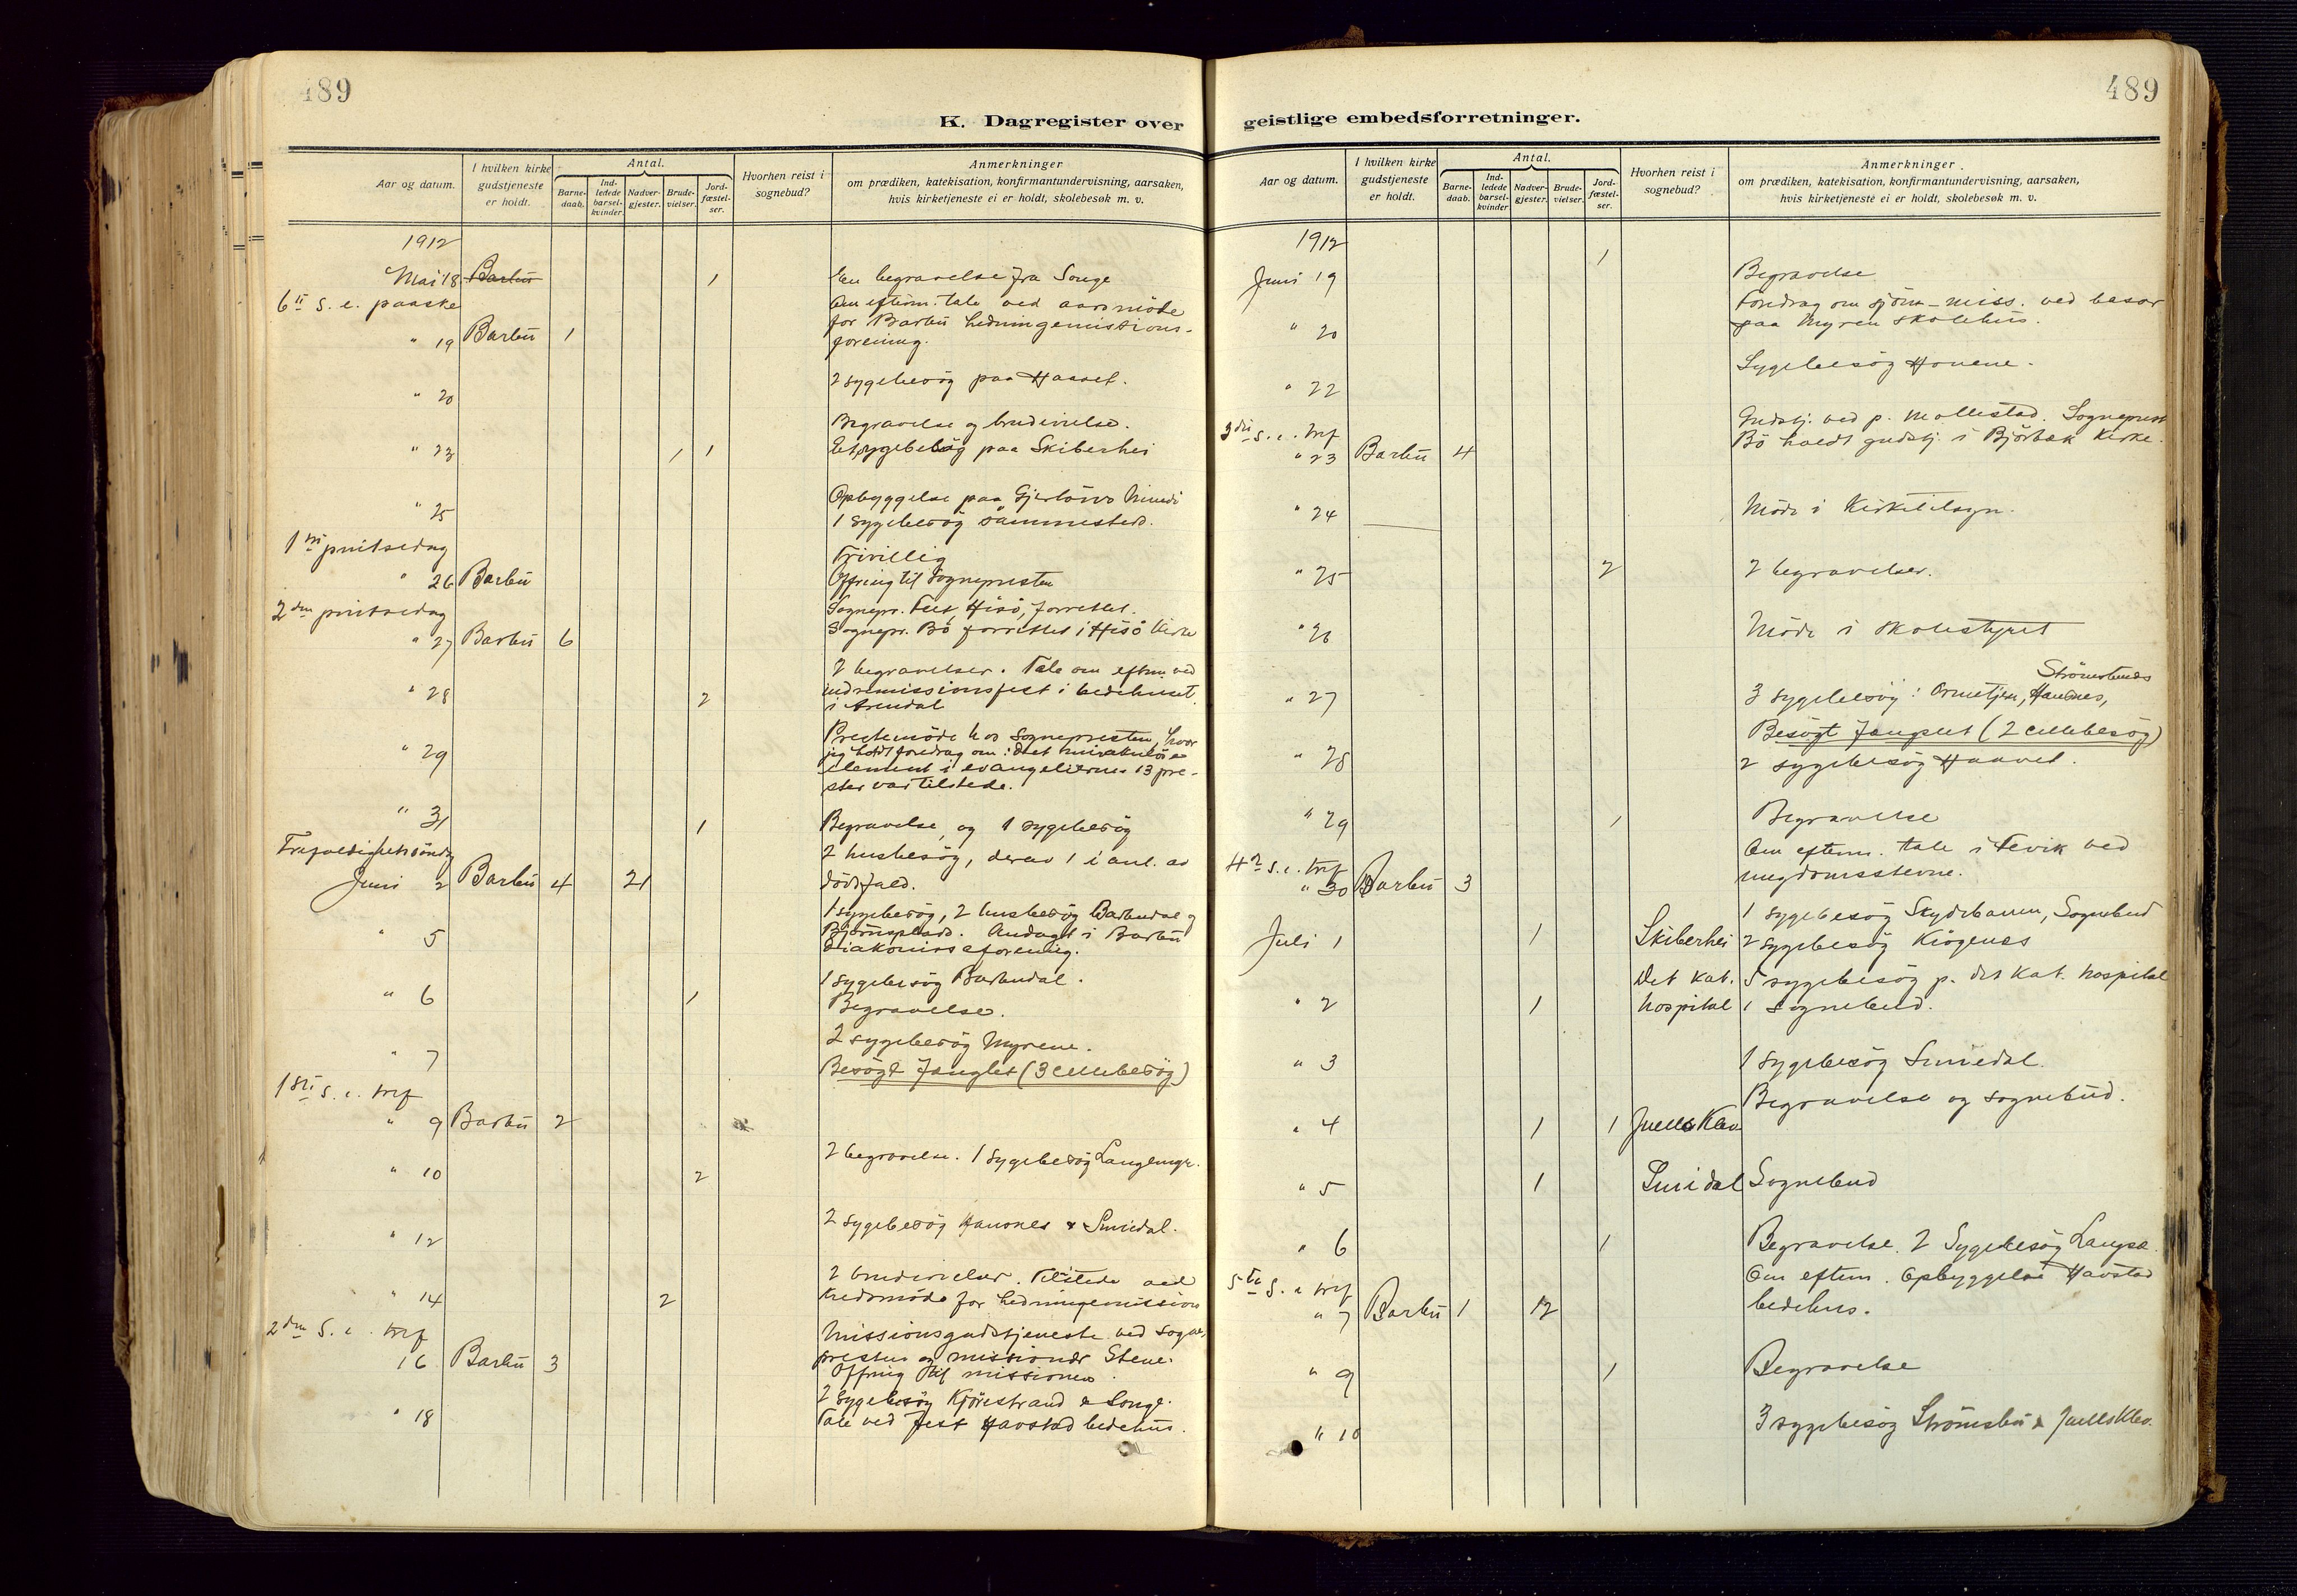 489
K. Dagregister over
Aar og datum.
I hvilken kirke gudstjeneste er holdt.
Antal.
Barne-daab.
Ind-ledede barsel-kvinder
Nadver-gjester.
Brude-vielser.
Jord-fæstel-ser.
Hvorhen reist i sognebud?
Anmerkninger
om prædiken, katekisation, konfirmantundervisning, aarsaken,
hvis kirketjeneste ei er holdt, skolebesøk m. v.
1912
Mai 18 Barbu 1 En begravelse fra Songe
6te S. e. paaske Om efterm. tale ved aarsmöde
for Barbu hedningemissions-
" 19 Barbu 1 forening.
" 20 2 sygebesög paa Haavet.
Begravelse og brudevielse.
" 23 1 1 Et sygebesög paa Skiberhei
Opbyggelse paa
" 25 1 sygebesög sammesteds.
1ste pintsedag Frivillig
" 26 Barbu Offring til sognepresten
2den pintsedag Sognepr. Hisö, forrettet.
" 27 Barbu 6 Sognepr. Bö forrettet i Hisö Kirke
2 begravelser. Tale om efterm. ved
" 28 2 indremissionsfest i bedehuset
i Arendal
Prestemöde hos Sognepresten hvor
" 29 jeg holdt foredrag om: det mirakulöse
element i evangelierne. 13 pre-
ster var tilstede.
" 31 1 Begravelse og 1 sygebesög
Trefoldighetssöndag 2 husbesög, derav 1 i anl. av
Juni 2 Barbu 4 21 dödsfald.
1 sygebesög, 2 husbesög Barbudal og
" 5 Björnsplads. Andagt i Barbu
diakonisseforening.
1 sygebesög Barbudal.
" 6 1 Begravelse.
2 sygebesög Myrene.
" 7 Besögt fænglet (3 cellebesög)
1ste S. e. tref
" 9 Barbu 2
" 10 2 2 begravelse. 1 sygebesög Langemyr.
" 12 2 sygebesög Hausnes & Smedal.
2 brudevielser. Tilstede ved
" 14 2 kredsmöde for hedningemission
2den S. e. tref Missionsgudstjeneste ved sogne-
16 Barbu 3 presten og missionær Stene.
Offring til missionen.
2 sygebesög Kjörestrand & Songe.
" 18 Tale ved fest Havstad bedehus.
489
geistlige embedsforretninger.
Aar og datum.
I hvilken kirke gudstjeneste er holdt.
Antal.
Barne-daab.
Ind-ledede barsel-kvinder
Nadver-gjester.
Brude-vielser.
Jord-fæstel-ser.
Hvorhen reist i sognebud?
Anmerkninger
om prædiken, katekisation, konfirmantundervisning, aarsaken,
hvis kirketjeneste ei er holdt, skolebesøk m. v.
1912
Juni 19 1 Begravelse
Foredrag om sjöm.-miss. ved basar
" 20 paa Myren skolehus.
" 22 Sygebesög
3die S. e. tref Gudstj. ved p. Mollestad. Sogneprest
" 23 Barbu 4 Bö holdt gudstj. i Björbæk Kirke.
" 24 Möde i Kirketilsyn.
" 25 2 2 begravelser.
" 26 Möde i skolestyret
Strömsbunes
" 27 3 sygebesög: Ormetjen, Hausnes,
Besögt fænglet (2 cellebesög)
" 28 2 sygebesög Haavet.
" 29 1 Begravelse
Om efterm. tale i Fevik ved
4de S. e. tref
" 30 Barbu 3 ungdomsstevne.
1 sygebesög Skydebanen, Sognebud
Juli 1 1 Skiberhei 2 sygebesög Kiögenes
Det kat. 5 sygebesög p. det kat. hospital
" 2 1 hospital 1 Sognebud.
" 3 1 sygebesög Smedal.
Begravelse og sognebud.
" 4 1 1 Juells Klev
" 5 1 Smedal Sognebud
" 6 1 Begravelse. 2 Sygebesög Langsæ.
5te S. e. tref Om efterm. Opbyggelse Havstad
" 7 Barbu 1 12 bedehus.
" 9 1 Begravelse
" 10 3 sygebesög Strömsbu & Juells Klev.